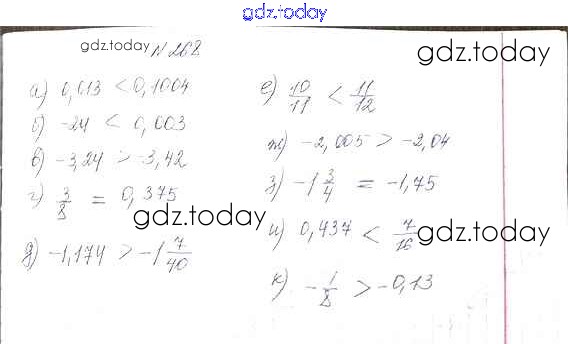 gdz.today
gdz.today
gdz.today
№ 268
а) 0,013 < 0,1004
б) -24 < 0,003
в) -3,24 > -3,42
г) 3/8 = 0,375
gdz.today
д) -1,174 > -1 7/40
е) 10/11 < 11/12
ж) -2,005 > -2,04
з) -1 3/4 = -1,75
и) 0,437 < 7/16
gdz.today
к) -1/8 > -0,13